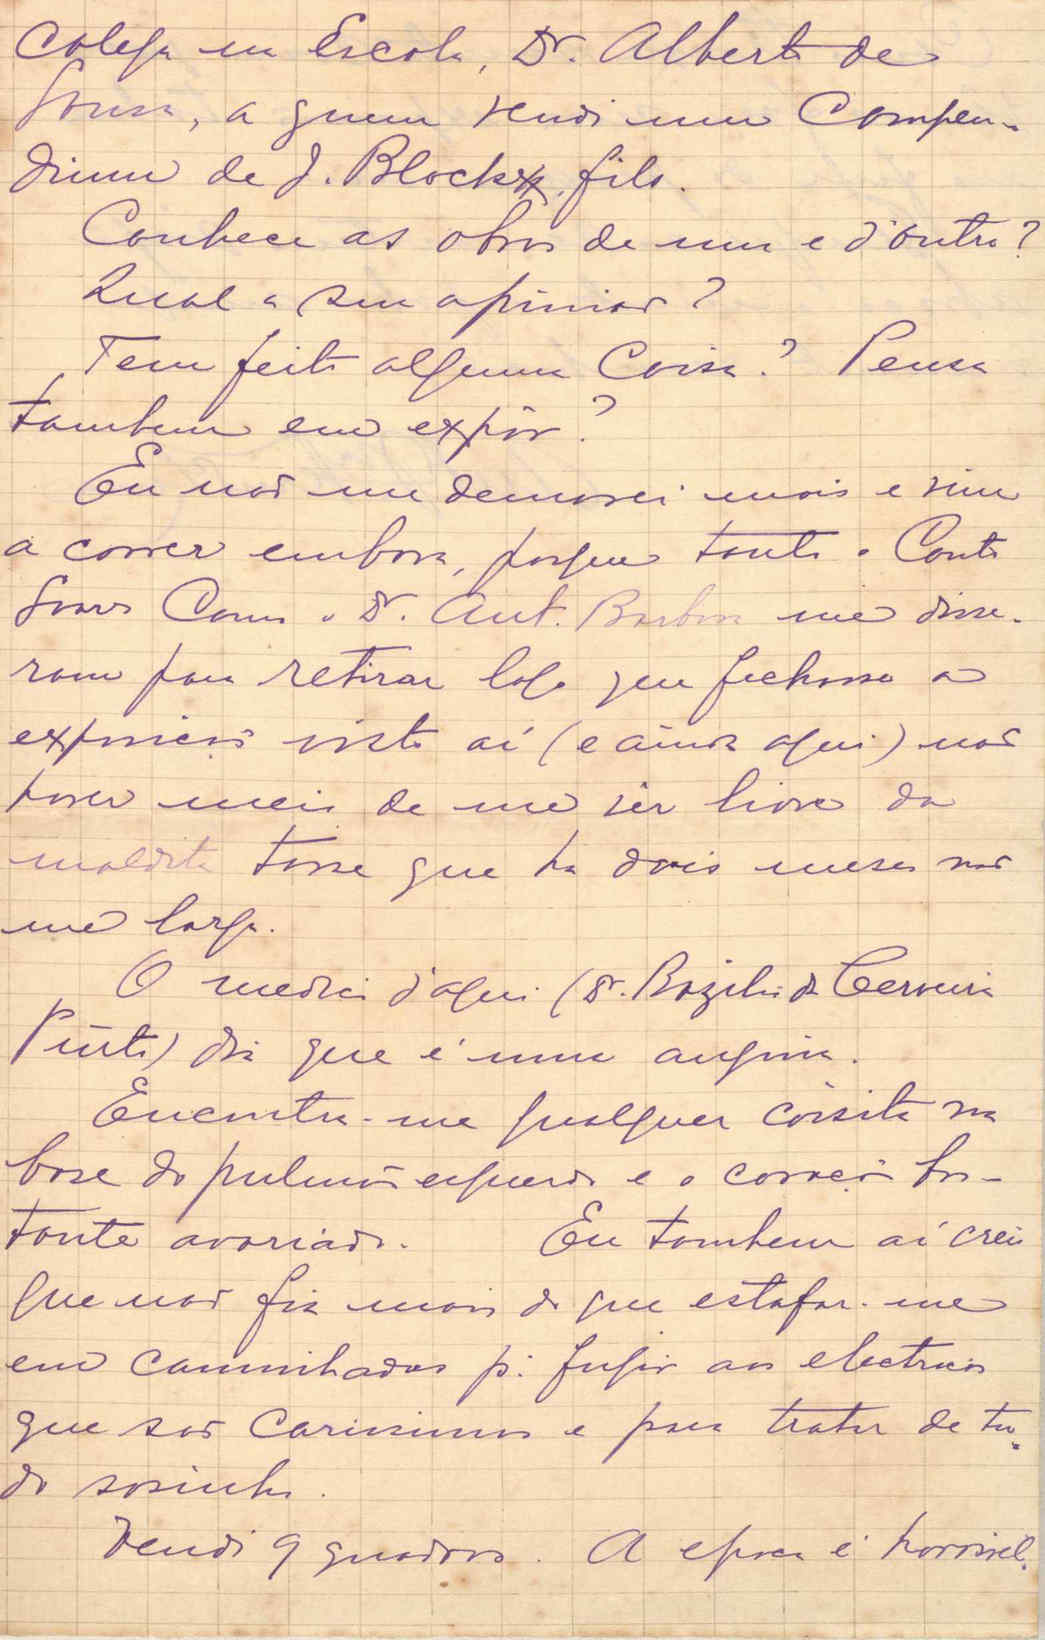 Colega na Escola, Dr. Alberto de
Sousa, a quem vendi um Compen-
dium de J. Blockx, fils.
Conhece as obras de um e d'outro?
Qual a sua opinião?
Tem feito alguma Coisa? Pensa
tambem em expôr?
Eu não me demorei mais e vim
a correr embora, porque tanto o Conto
Soares Como o Dr. Ant. Barbosa me disse-
ram para retirar logo que fechasse a
exposição visto aí (e ainda aqui) não
haver meio de me vêr livre da
maldita tosse que ha dois meses não
me larga.
O medico d'aqui (Dr. Bazilio da Cerveira
Pinto) diz que é uma angina.
Encontra-me qualquer coisita na
base do pulmão esquerdo e o coração bas-
tante avariado. Eu tambem aí creio
que não fiz mais do que estafar-me
em caminhadas p.ª fugir aos electricos
que são carissimos e para tratar de tu-
do sosinho.
Vendi 9 quadros. A epoca é horrivel.